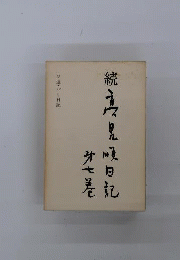 続
高見順日記
第七巻